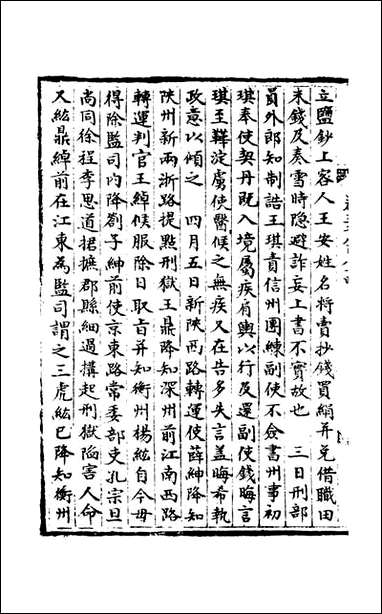 立鹽鈔上客人王安姓名將賣抄錢買絹并兑借職田
米錢及奏雪時隱避詐妄上書不實故也　三日刑部
員外郎知制誥王琪責信州團練副使不僉書州事初
琪奉使契丹既入境屬疾有輿以行及還副使錢晦言
琪王鞾淀虜使醫候之無疾又在告多失言蓋晦希執
政意以傾之　四月五日新陝西路轉運使薛紳降知
陜州新兩浙路提點刑獄王鼎降知深州前江南西路
轉運判官王綽候服除日取旨并知衡州楊紘自今毋
得除監司內降劄子紳前使京東路常委部吏孔宗旦
尚同徐程李思道捃摭郡縣細過攟起刑獄陷害人命
又紘鼎綽前在江東為監司謂之三虎紘已降知衡州